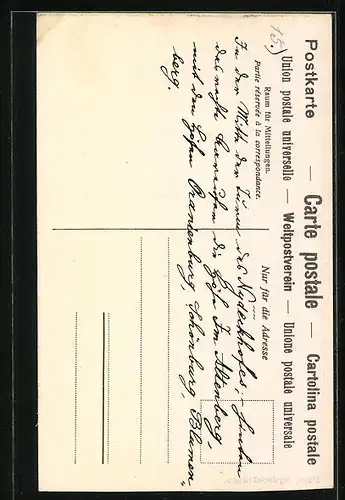 15.)
Postkarte — Carte postale — Cartolina postale
Union postale universelle — Weltpostverein — Unione postale universale
Raum für Mitteilungen.
Partie réservée à la correspondance.
Nur für die Adresse
In der Mitte der Turm des Nydeckhofes; hinten
das nächste die Höfe Im Altenberg,
mit den Höfen Oranienburg, Schönburg, Blumen-
berg.